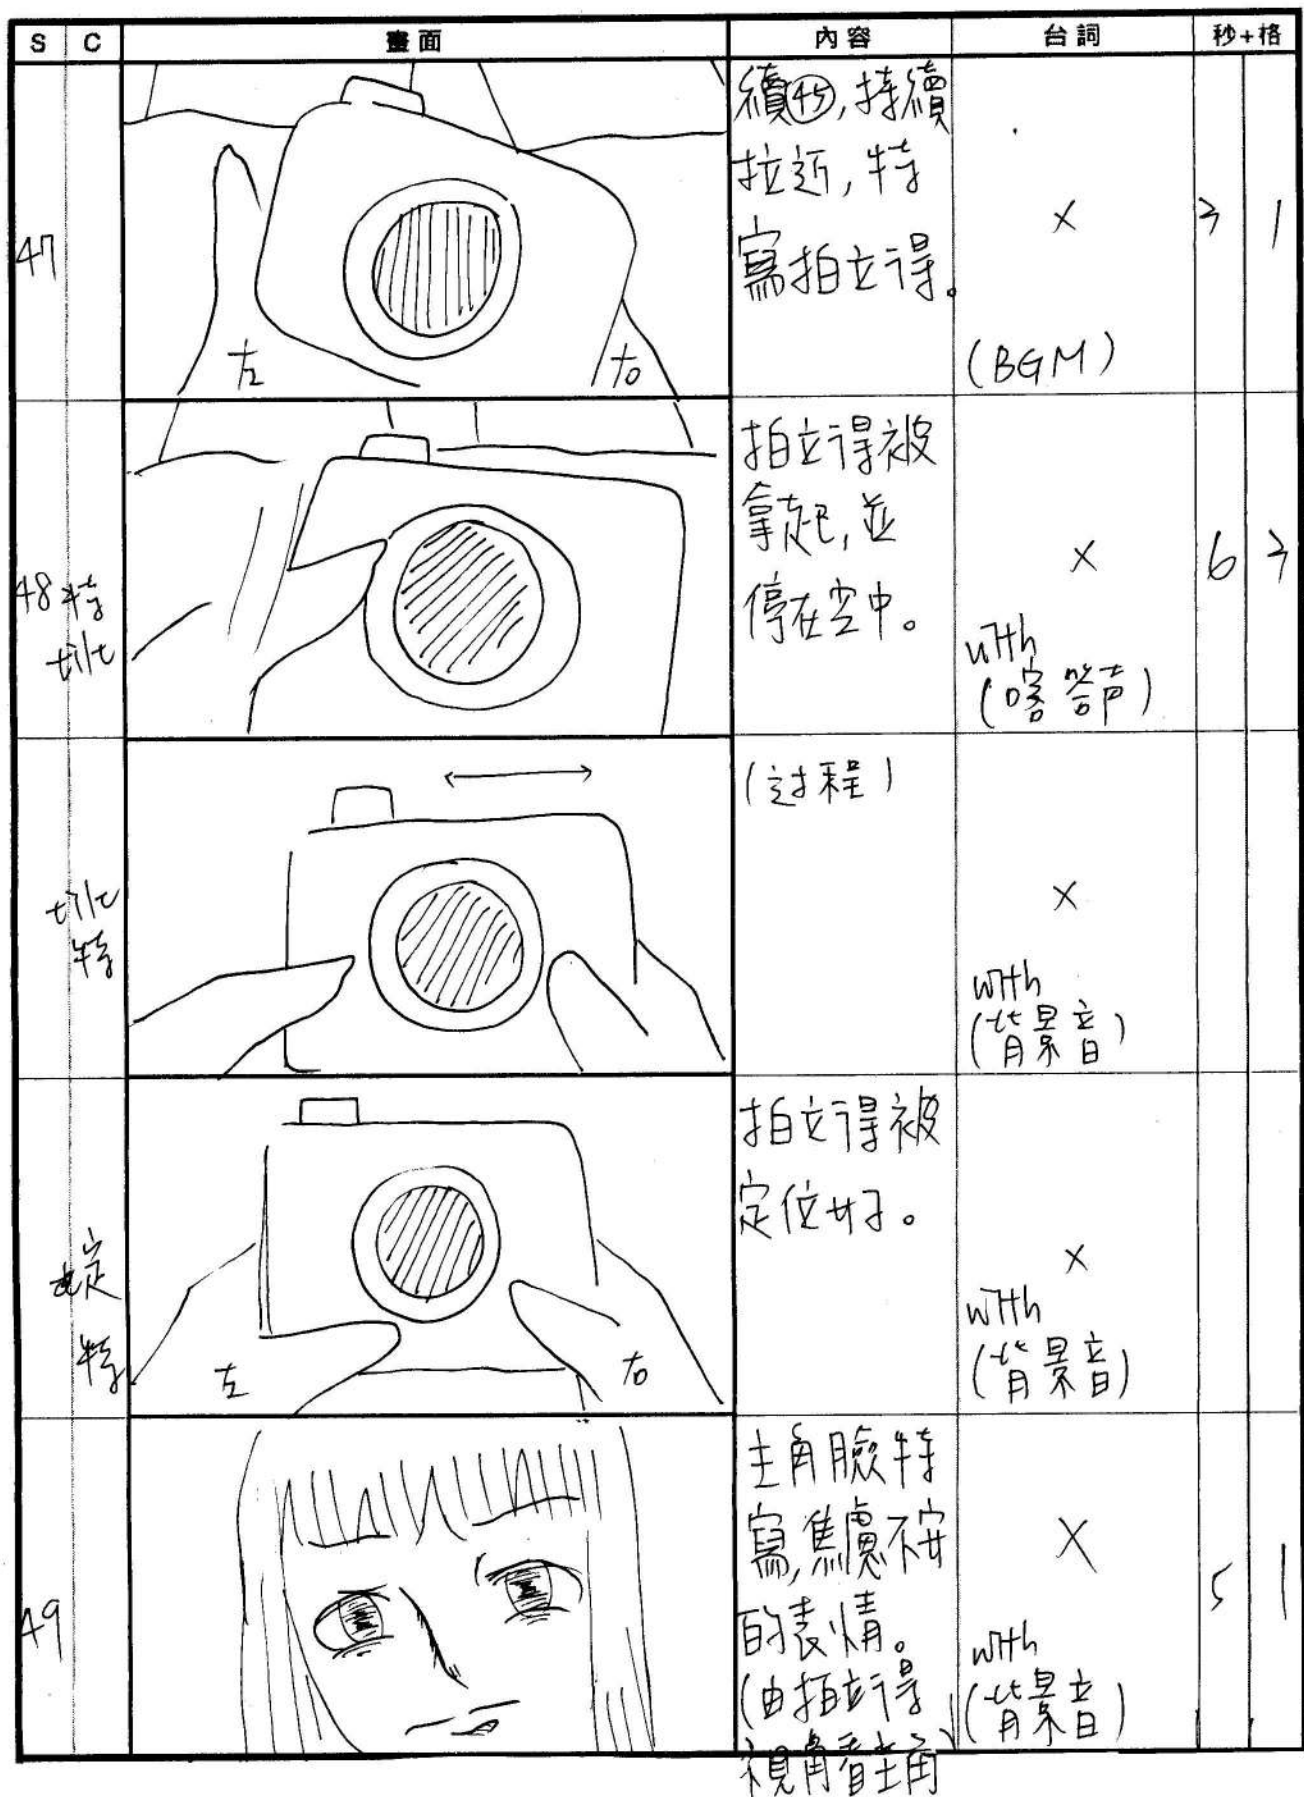 S C 畫面 內容 台詞 秒+格
47
左
右
續㊺,持續
拉近,特
寫拍立得。
×
(BGM)
3 1
48 特
tilt
拍立得被
拿起,並
停在空中。
×
with
(喀答声)
6 3
tilt
特
(过程)
×
with
(背景音)
定
特
左
右
拍立得被
定位好。
×
with
(背景音)
49
主角臉特
寫,焦慮不安
的表情。
(由拍立得
視角看主角)
×
with
(背景音)
5 1